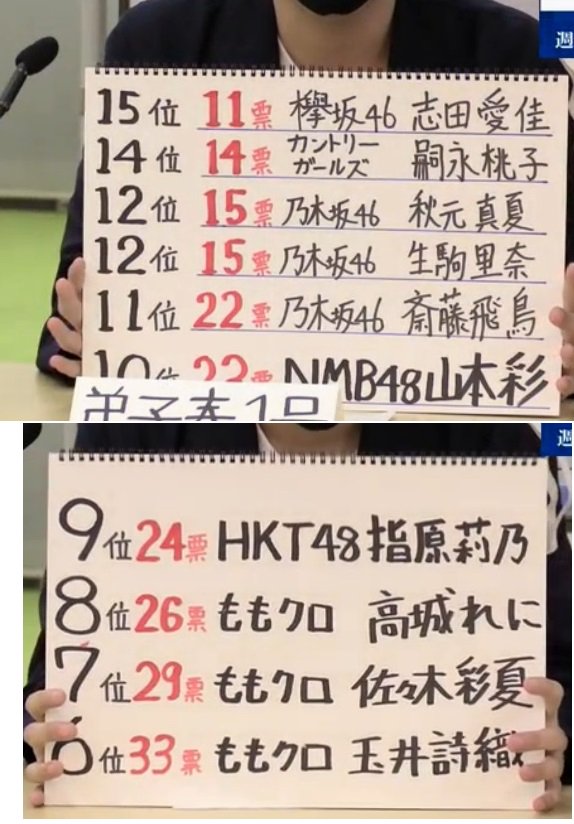 週
15位 11票 欅坂46 志田愛佳
14位 14票 カントリーガールズ 嗣永桃子
12位 15票 乃木坂46 秋元真夏
12位 15票 乃木坂46 生駒里奈
11位 22票 乃木坂46 斎藤飛鳥
10位 23票 NMB48山本彩
週
9位 24票 HKT48指原莉乃
8位 26票 ももクロ 高城れに
7位 29票 ももクロ 佐々木彩夏
6位 33票 ももクロ 玉井詩織